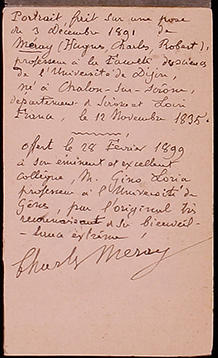 Portrait, fait sur une pose
du 3 Décembre 1891 de
Méray (Hugues, Charles, Robert),
professeur à la Faculté des Sciences
de l'Université de Dijon,
né à Chalon-sur-Saône,
département de Saône et Loire
France, le 12 Novembre 1835.
offert le 28 Février 1899
à son éminent et excellent
collègue, M. Gino Loria
professeur à l'Université de
Gênes, par l'original très
reconnaissant de sa bienveil-
lance extrême!
Charles Méray